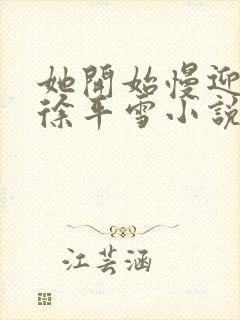 她開始慢迎
徐平雪小說
江芸涵